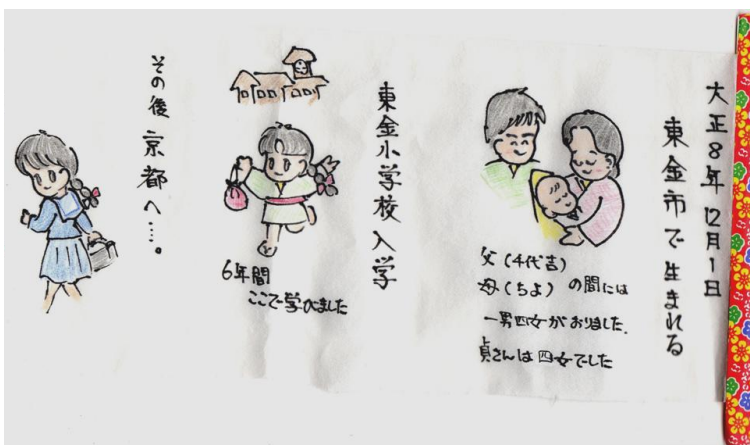 大正8年12月1日
東金市で生まれる
父(千代吉)
母(ちよ)の間には
一男四女がおりました。
貞さんは四女でした
東金小学校入学
6年間
ここで学びました
その後京都へ….。